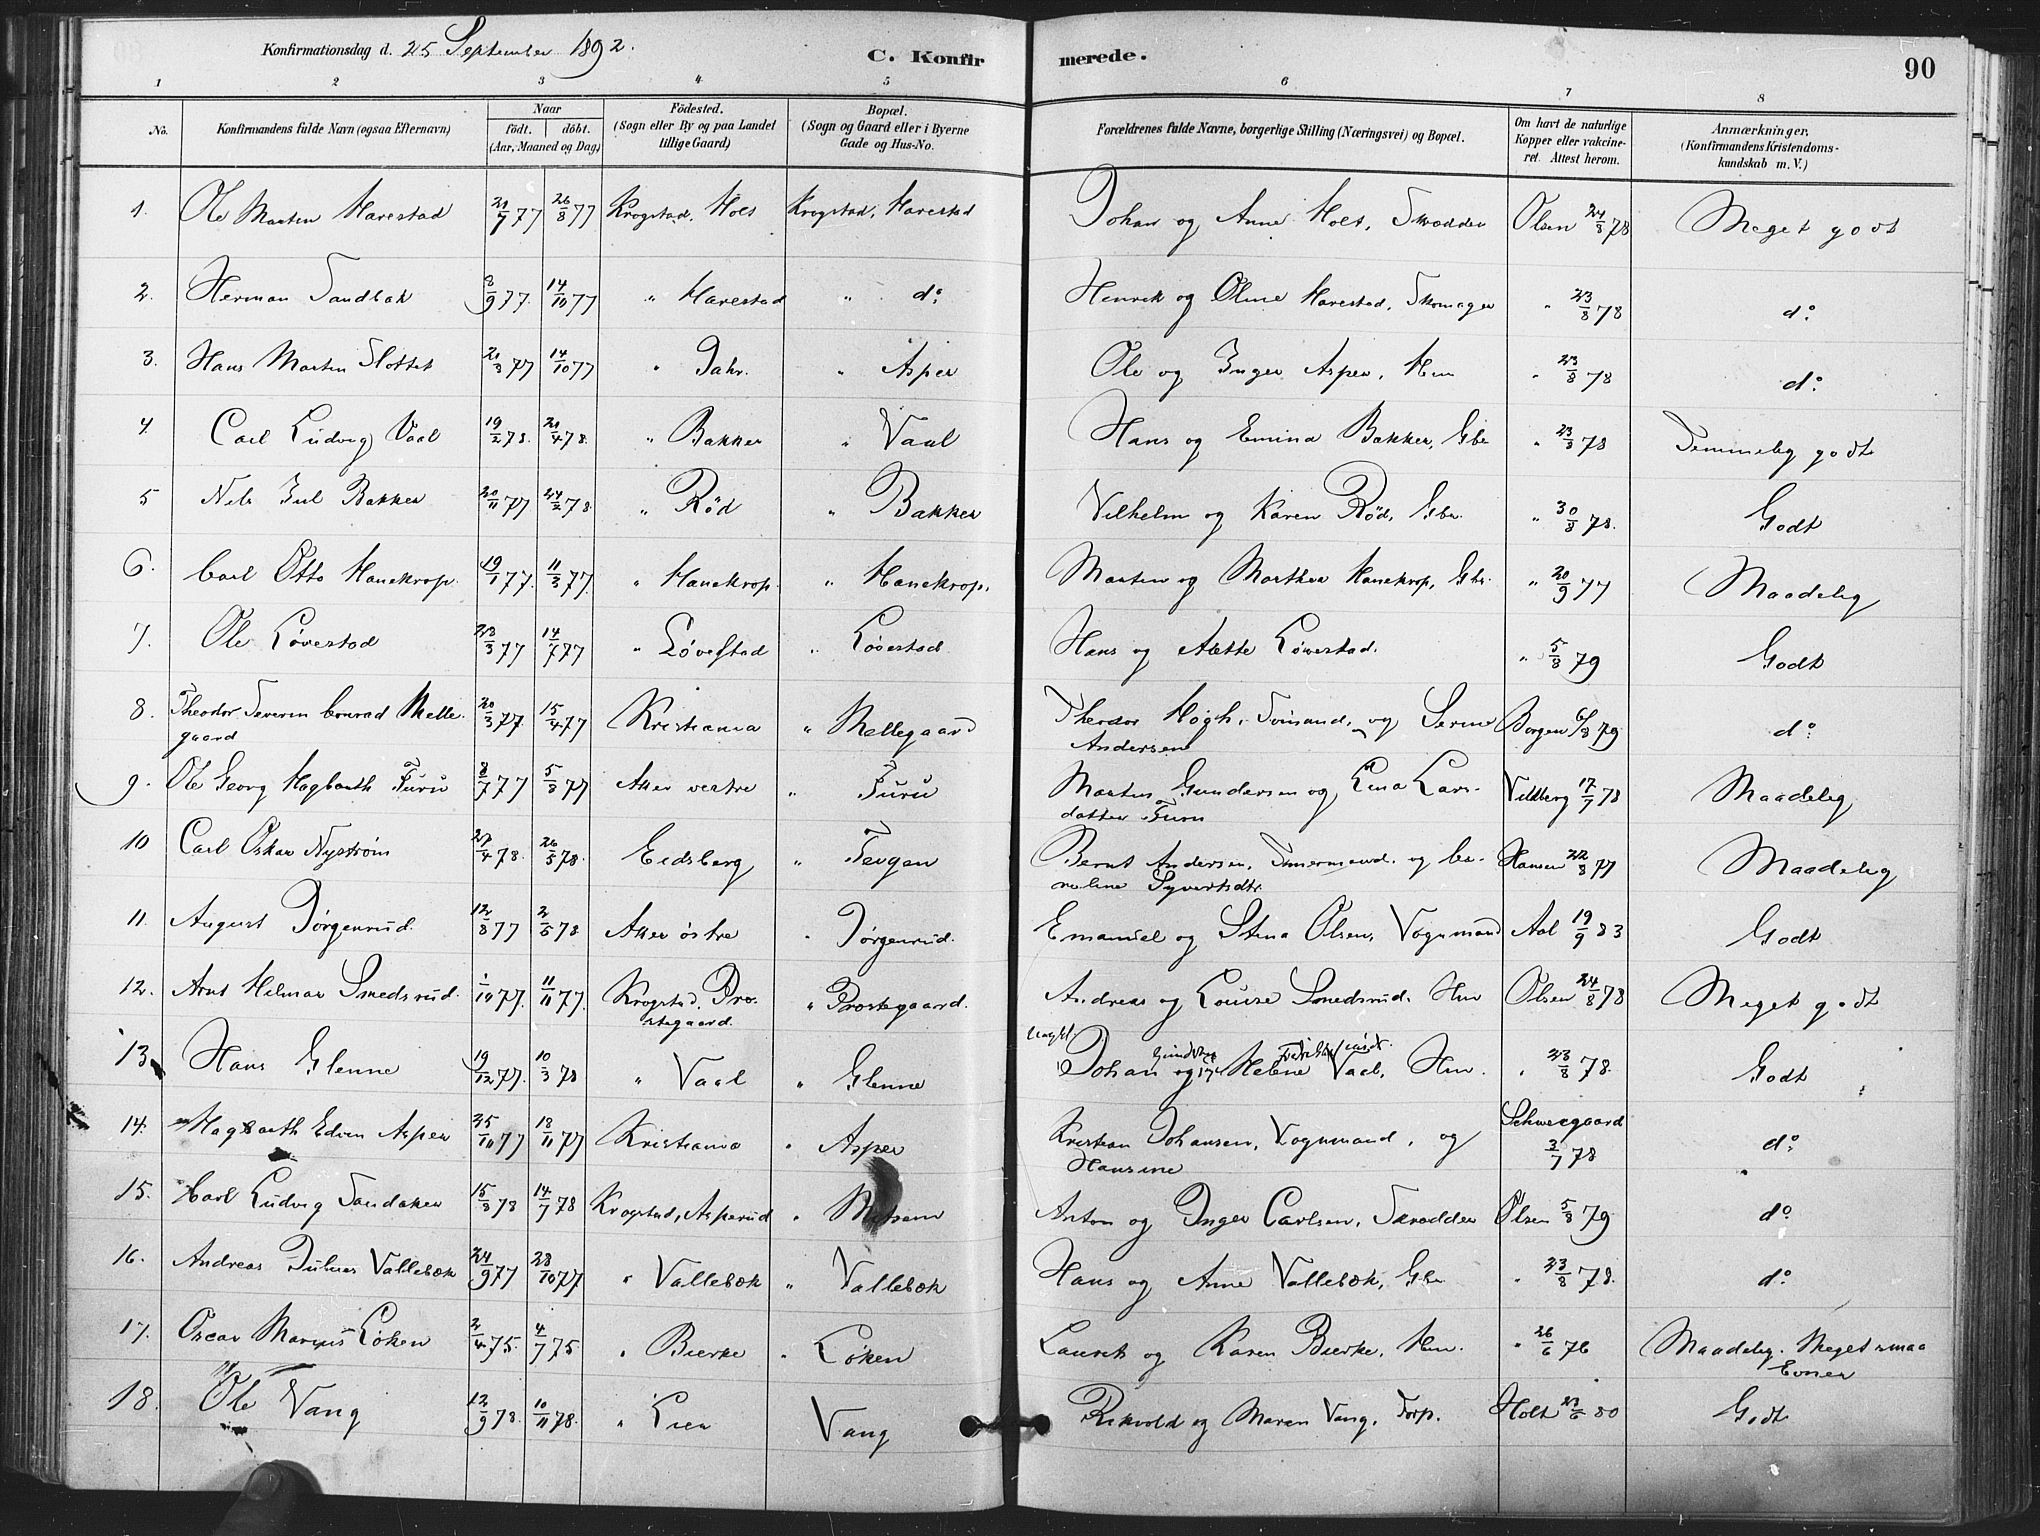 Konfirmationsdag d. 25 September 1892. C. Konfirmerede. 90
1 2 3 4 5 6 7 8
No. Konfirmandens fulde Navn (ogsaa Efternavn) Naar født. døbt. (Aar, Maaned og Dag) Födested. (Sogn eller By og paa Landet tillige Gaard) Bopæl. (Sogn og Gaard eller i Byerne Gade og Hus-No. Forældrenes fulde Navne, borgerlige Stilling (Næringsvei) og Bopæl. Om havt de naturlige Kopper eller vakcineret. Attest herom. Anmærkninger. (Konfirmandens Kristendomskundskab m. V.)
1. Ole Martin Harestad 21/7 77 26/8 77 Krogstad, Hols Krogstad, Harestad Johan og Anne Hols, Skrædder Olsen 24/8 78 Meget godt
2. Herman Sandbak 8/9 77. 14/10 77 " Harestad " do. Henrik og Oline Harestad, Skomager " 23/8 78 do.
3. Hans Martin Slottet 21/3 77 14/10 77 " Dahr. " Asper Ole og Inger Asper, Hm " 23/8 78 do.
4. Carl Ludvig Vaal 19/2 78. 21/4 78. " Bakker " Vaal Hans og Emina Bakker, Gbr " 23/8 78 Temmelig godt
5 Nils Jul Bakker 20/11 77 24/2 78 " Rød " Bakker Vilhelm og Karen Rød, Gbr. " 30/8 78. Godt
6. Carl Otto Hanekrop. 19/1 77. 11/3 77. " Hanekrop. " Hanekrop. Martin og Marthea Hanekrop, Gbr. " 20/9 77 Maadelig
7. Ole Løvestad 23/3 77 14/7 77 " Løvestad " Løvestad Hans og Alette Løvestad. " 5/8 79 Godt
8. Theodor Severin Conrad Mellegaard 20/3 77. 15/4 77 Kristiania " Mellegaard Theodor Høgh, Sømand, og Serine Andersen Borgen 6/8 79 do.
9. Ole Georg Hagbarth Furu 8/7 77 5/8 77 Aker vestre " Furu Martin Gundersen og Lina Larsdatter Furu Vildberg 17/7 78 Maadelig
10 Carl Oskar Nystrøm 27/4 78. 26/5 78. Eidsberg " Tevgen Bernt Andersen, Tømermand. og Carneline Syvertsdtr. Hansen 22/8 77 Maadelig
11. August Jørgenrud. 12/8 77 2/6 78 Aker østre " Jørgenrud. Emanuel og Stina Olsen, Vognmand Aal 19/9 83 Godt
12. Arnt Hilmar Smedsrud. 1/10 77. 11/11 77. Krogstad, Prostegaard. " Prostegaard. Andreas og Louise Smedsrud. Hm Olsen 24/8 78 Meget godt
13. Hans Glenne 19/12 77. 10/3 78 " Vaal " Glenne Uægt. Johan og Helene Vaal, Hm. " 23/8 78. Godt
14. Hagbarth Edvin Asper 25/10 77 18/11 77 Kristiania " Asper Kristian Johansen, Vognmand, og Hansine Schweegaard 3/7 78 do.
15. Carl Ludvig Sandaker 15/3 78 14/7 78 Krogstad, Asperud " Anton og Inger Carlsen, Skrædder Olsen 5/8 79 do.
16. Andreas Julius Vallebæk 24/9 77 28/10 77 " Vallebæk " Vallebæk Hans og Anne Vallebæk, Gbr " 23/8 78. do.
17. Oscar Marius Løken 2/4 75. 4/7 75 " Bierke " Løken Laurits og Karen Bierke, Hm. " 26/6 76 Maadelig. Meget smaa Evner
18. Ole Vang 12/9 78. 10/11 78. " Lier Vang Rikvold og Maren Vang. Torp. Holt 23/6 80 Godt